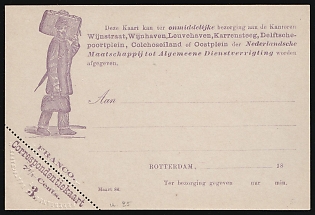 Deze Kaart kan ter onmiddelijke bezorging aan de Kantoren
Wijnstraat, Wijnhaven, Leuvehaven, Karrensteeg, Delftsche-
poortplein, Calandseiland of Oostplein der Nederlandsche
Maatschappij tot Algemeene Dienstverrigting worden
afgegeven.
Aan
ROTTERDAM, 18
Ter bezorging gegeven uur min.
Maart 86.
FRANCO
Correspondentiekaart
Cents
3.